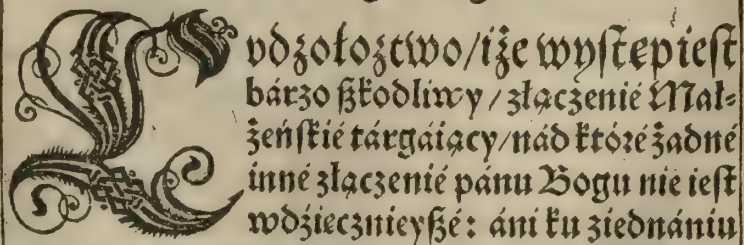 Cvdzołoztwo/iże wyſtępieſt
bárzo ßkodliwy / złączenié Mał⸗
żeńſkié tárgáiący/nád któré żadné
inné złączenié pánu Bogu nie ieſt
wdźiecznieyßé: áni ku ziednániu